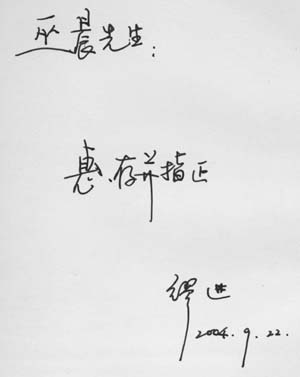 巫晨先生：
惠存并指正
缪
2004.9.22.